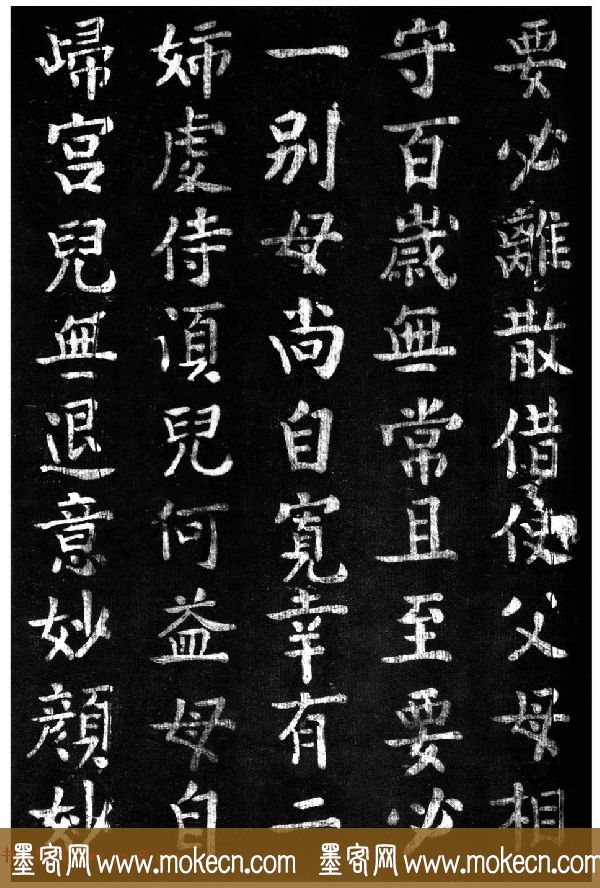 要必離散借使父母相
守百歲無常且至要必
一別母尚自寬幸有二
姉處侍湏兒何益母自
歸宫兒無退意妙顏妙
墨客网 www.mokecn.com 墨客网 www.mokecn.com